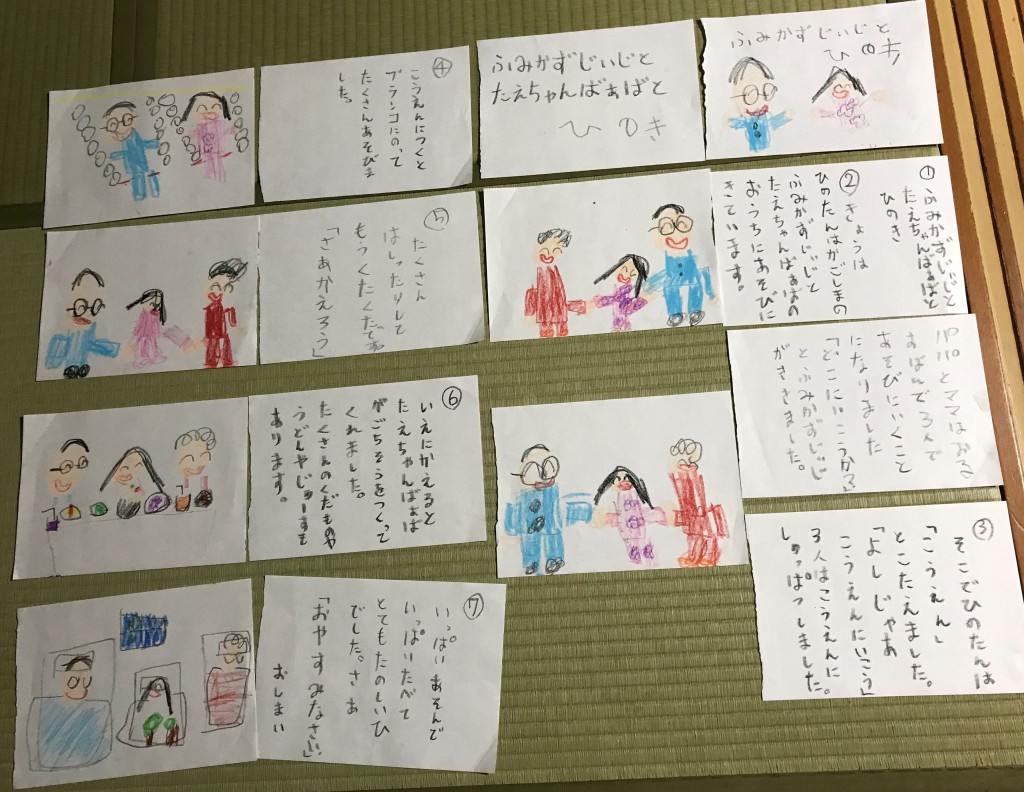 ふみかずじぃじと
ひのき
ふみかずじぃじと
たえちゃんばぁばと
ひのき
①
ふみかずじぃじと
たえちゃんばぁばと
ひのき
②
きょうは
ひのたんはかごしまの
ふみかずじぃじと
たえちゃんばぁばの
おうちにあそびに
きています。
パパとママはおる
すばんで3人で
あそびにいくこと
になりました
「どこにいこうかな」
とふみかずじぃじ
がききました。
③
そこでひのたんは
「こうえん」
とこたえました。
「よしじゃあ
こうえんにいこう」
3人はこうえんに
しゅっぱつしました。
④
こうえんにつくと
ブランコにのって
たくさんあそびま
した。
⑤
たくさん
はしったりして
もうくたくたです
「さあかえろう」
⑥
いえにかえると
たえちゃんばぁばは
がごちそうをつくって
くれました。
たくさんのくだものや
うどんやじゅーすも
あります。
⑦
いっぱいあそんで
いっぱいたべて
とてもたのしいひ
でした。さあ
「おやすみなさい。」
おしまい